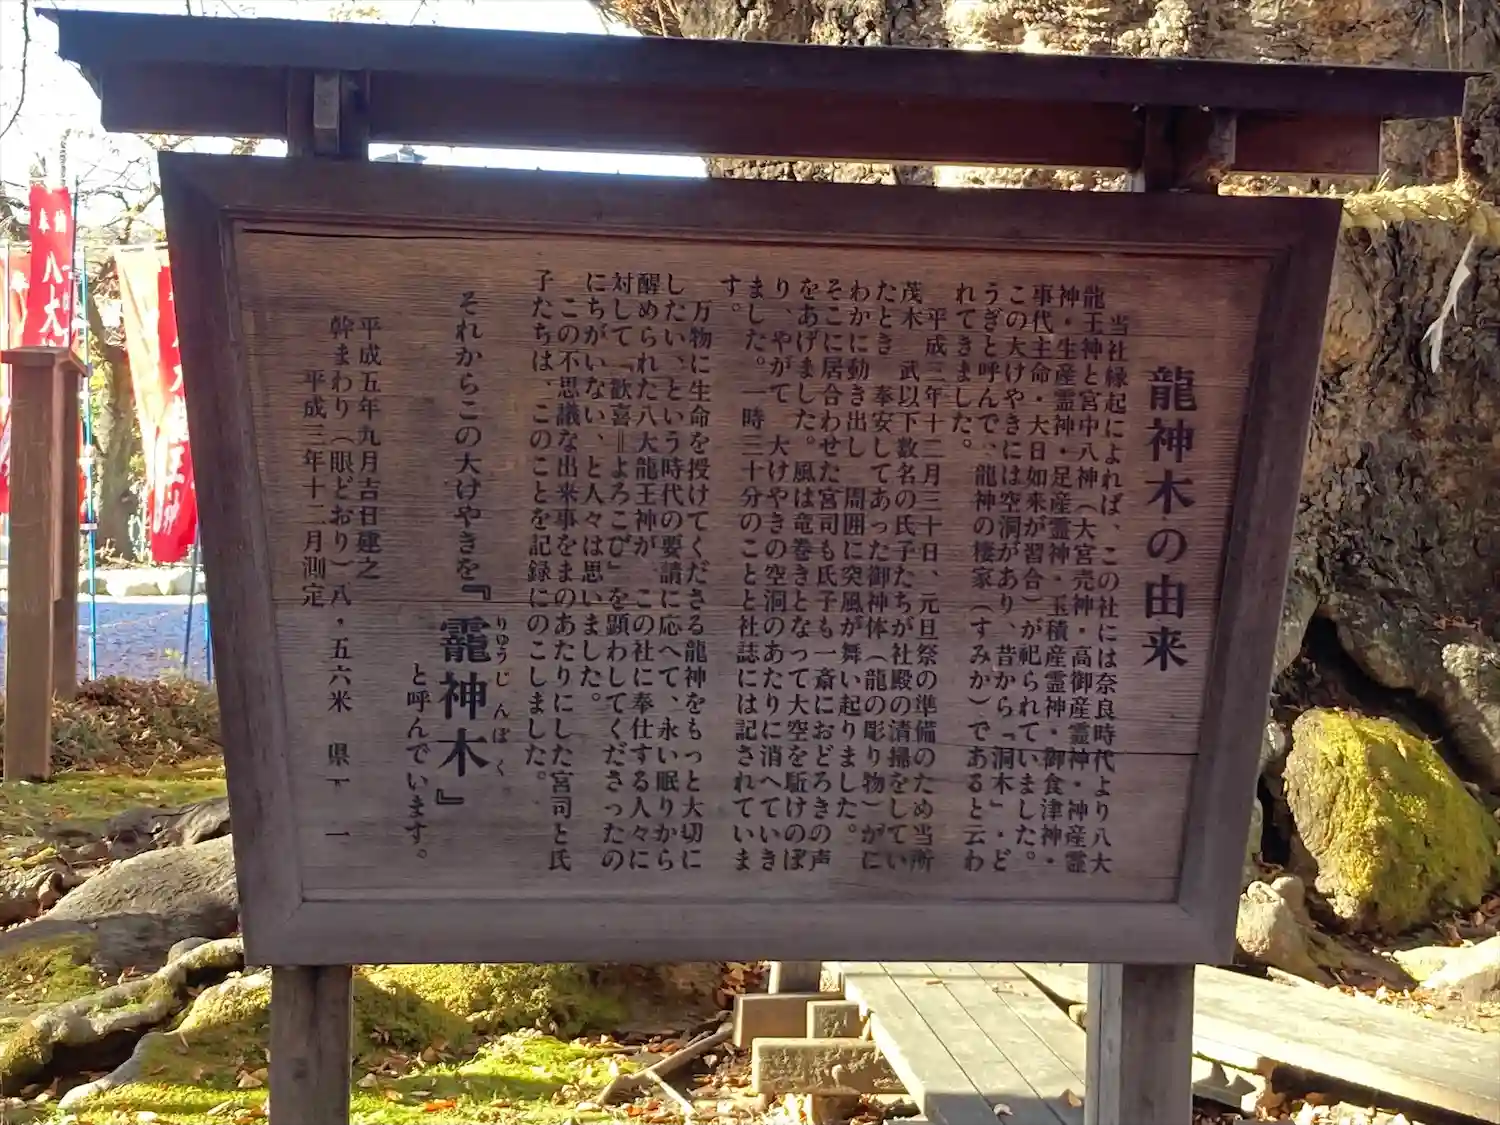 龍神木の由来
当社縁起によれば、この社には奈良時代より八大
龍王神と宮中八神（大宮売神・高御産霊神・神産霊
神・生産霊神・足産霊神・玉積産霊神・御食津神・
事代主命・大日如来が習合）が祀られていました。
この大けやきには空洞があり、昔から「洞木」・ど
うぎと呼んで、龍神の棲家（すみか）であると云わ
れてきました。
平成三年十二月三十日、元旦祭の準備のため当所
茂木　武以下数名の氏子たちが社殿の清掃をしてい
たとき、奉安してあった御神体（龍の彫り物）がに
わかに動き出し、周囲に突風が舞い起りました。
そこに居合わせた宮司も氏子も一斎におどろきの声
をあげました。風は竜巻きとなって大空を駈けのぼ
り、やがて、大けやきの空洞のあたりに消へていき
ました。一時三十分のことと社誌には記されていま
す。
万物に生命を授けてくださる龍神をもっと大切に
したい、という時代の要請に応へて、永い眠りから
醒められた八大龍王神が、この社に奉仕する人々に
対して「歓喜＝よろこび」を顕わしてくださったの
にちがいない、と人々は思いました。
この不思議な出来事をまのあたりにした宮司と氏
子たちは、このことを記録にのこしました。
それからこの大けやきを『龗神木』
りゅうじんぼく
と呼んでいます。
平成五年九月吉日建之
幹まわり（眼どおり）八，五六米　県下　一
平成三年十二月測定
奉
納
八大
王神